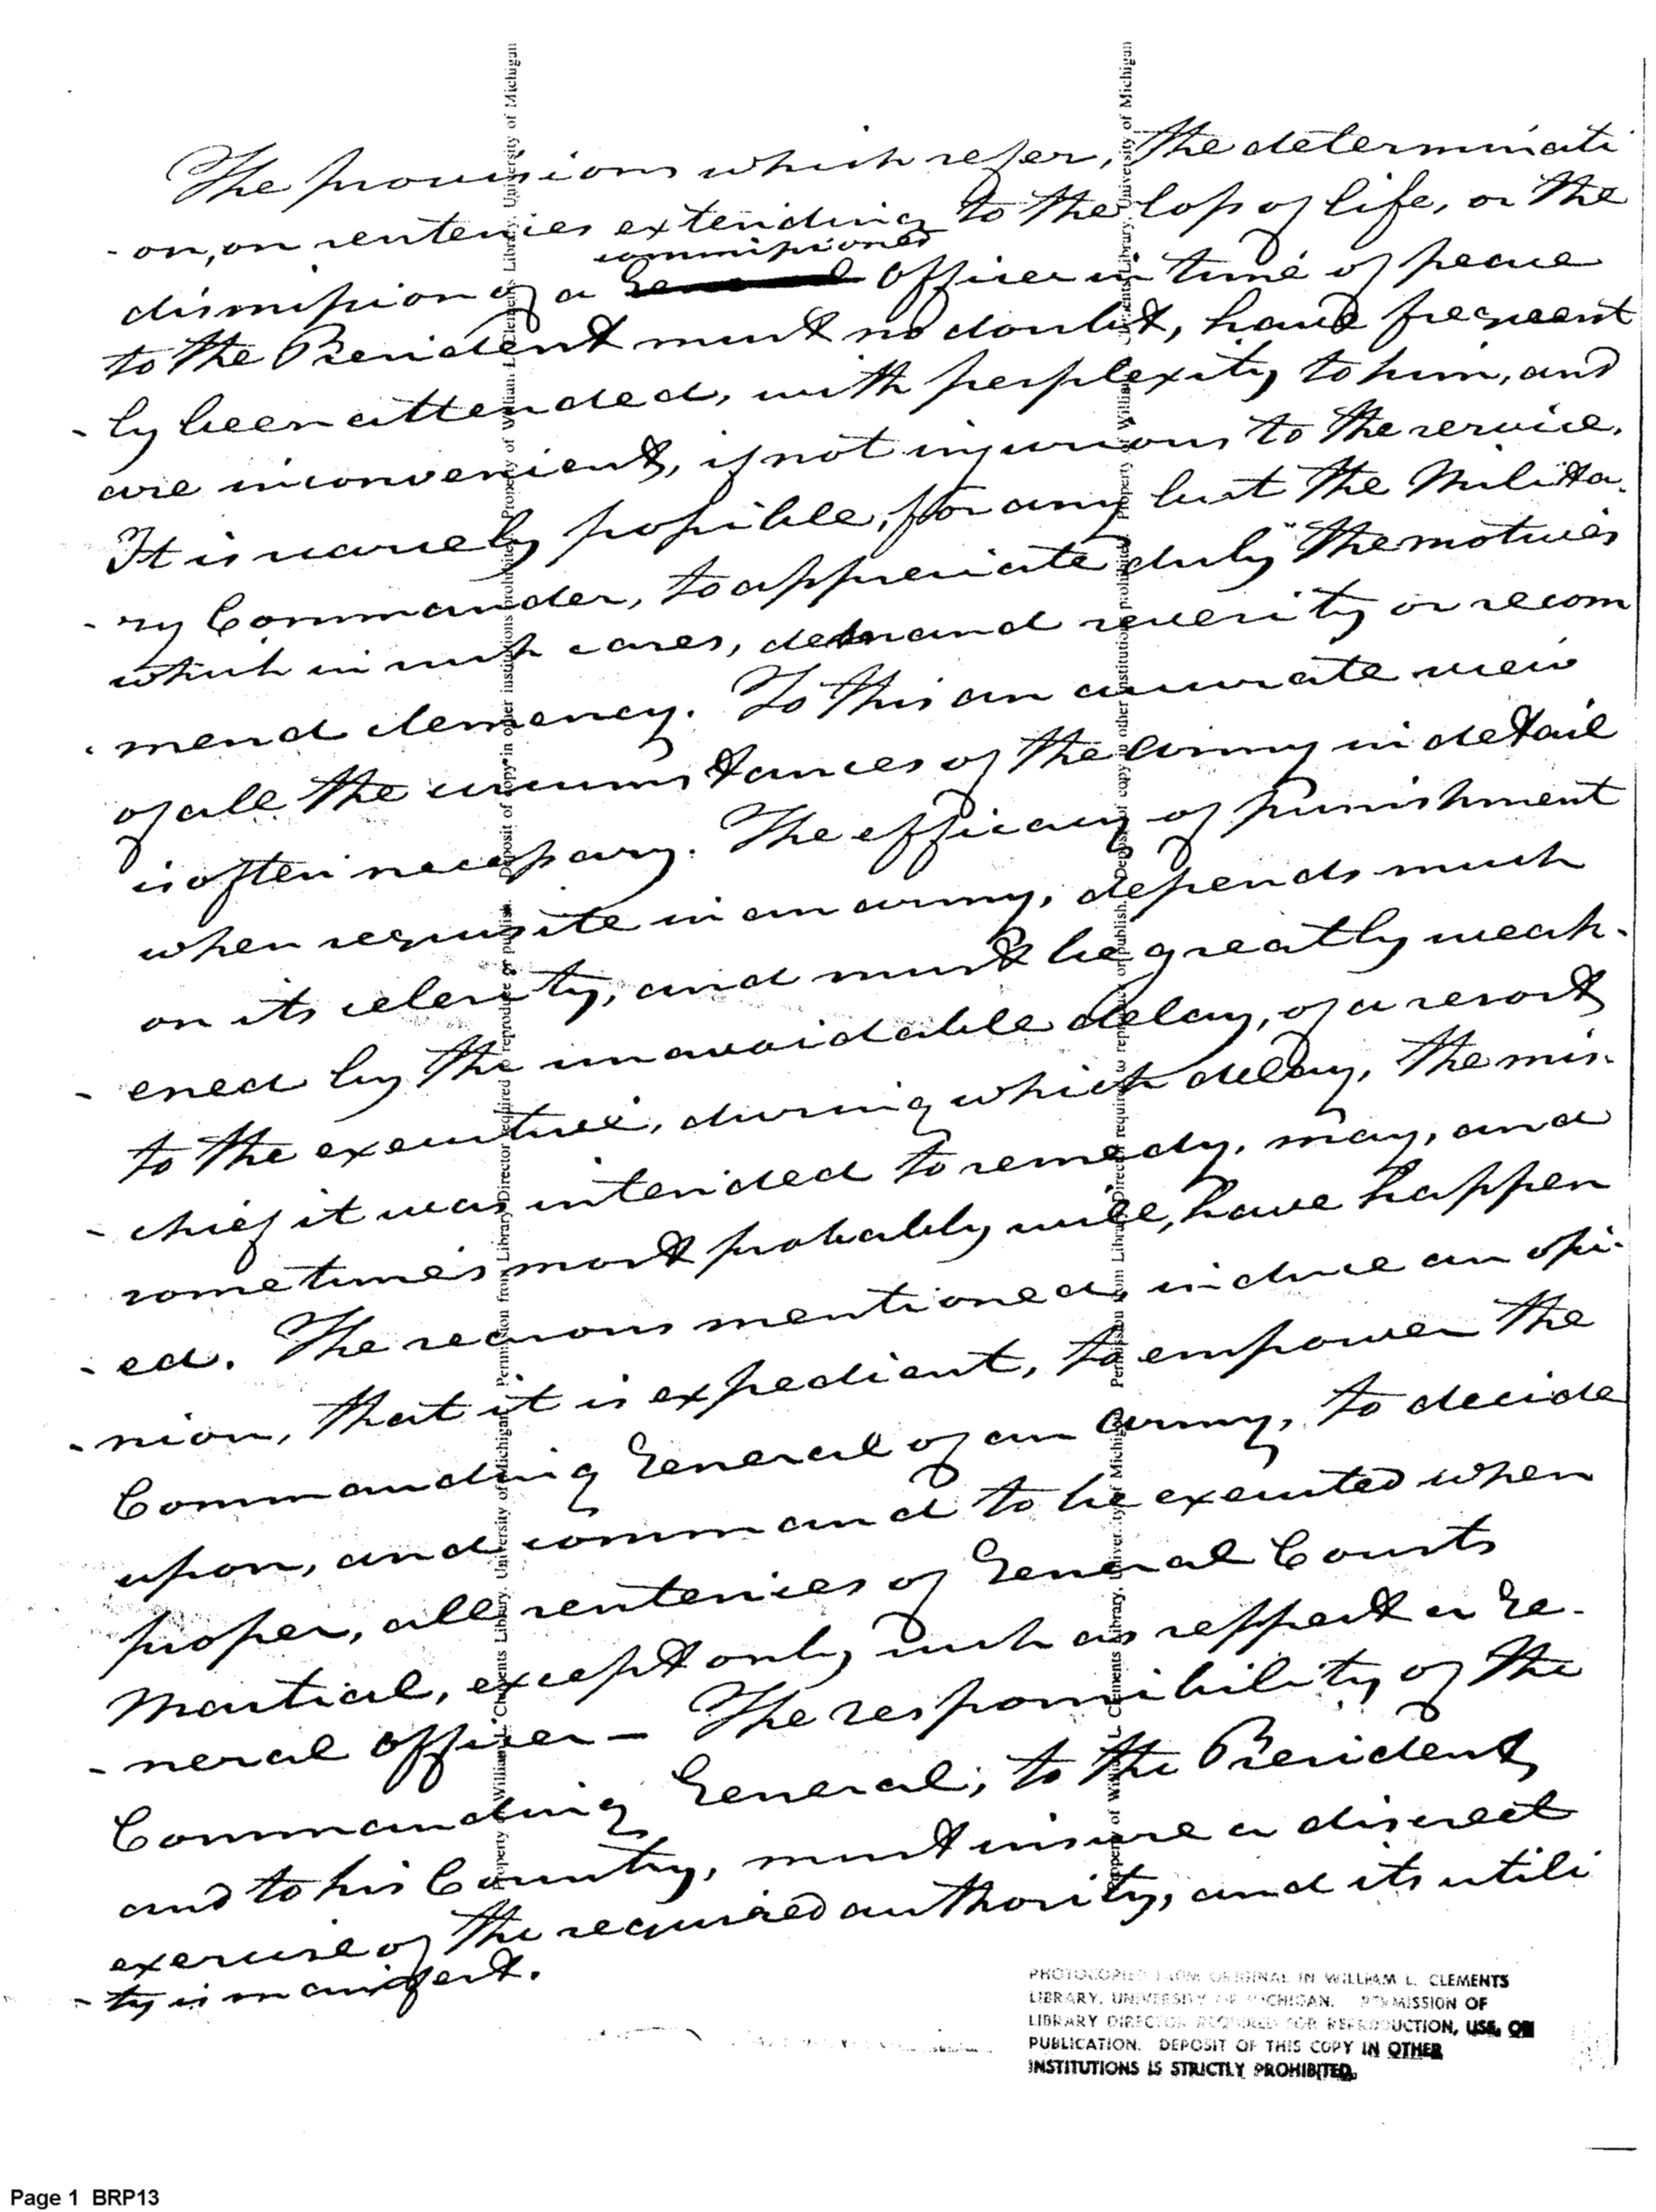 The provisions which refer, the determinati
- on, on sentences extending to the loss of life, or the
commissioned
dismission of a General officer in time of peace
to the President must no doubt, have frequent
- ly been attended, with perplexity to him, and
are inconvenient, if not injurious to the service.
It is scarcely possible, for any but the Milita-
- ry Commander, to appreciate duly the motives
which in such cases, demand severity or recom
- mend clemency. To this an accurate view
of all the circumstances of the army in detail
is often necessary. The efficacy of punishment
when requisite in an army, depends much
on its celerity, and must be greatly weak-
- ened by the unavoidable delay, of a resort
to the executive, during which delay, the mis-
- chief it was intended to remedy, may, and
sometimes most probably will, have happen
- ed. The reasons mentioned, induce an opi-
- nion, that it is expedient, to empower the
Commanding General of an army, to decide
upon, and command to be executed when
proper, all sentences of General Courts
Martial, except only such as respect a Ge-
- neral officer — The responsibility of the
Commanding General, to the President,
and to his Country, must insure a discreet
exercise of the required authority, and its utili
- ty is manifest.
Property of William L. Clements Library, University of Michigan. Permission from Library Director required to reproduce or publish. Deposit of copy in other institutions prohibited. Property of William L. Clements Library, University of Michigan
Property of William L. Clements Library, University of Michigan. Permission from Library Director required to reproduce or publish. Deposit of copy in other institutions prohibited. Property of William L. Clements Library, University of Michigan
PHOTOCOPIED FROM ORIGINAL IN WILLIAM L. CLEMENTS
LIBRARY, UNIVERSITY OF MICHIGAN. PERMISSION OF
LIBRARY DIRECTOR REQUIRED FOR REPRODUCTION, USE, OR
PUBLICATION. DEPOSIT OF THIS COPY IN OTHER
INSTITUTIONS IS STRICTLY PROHIBITED.
Page 1 BRP13